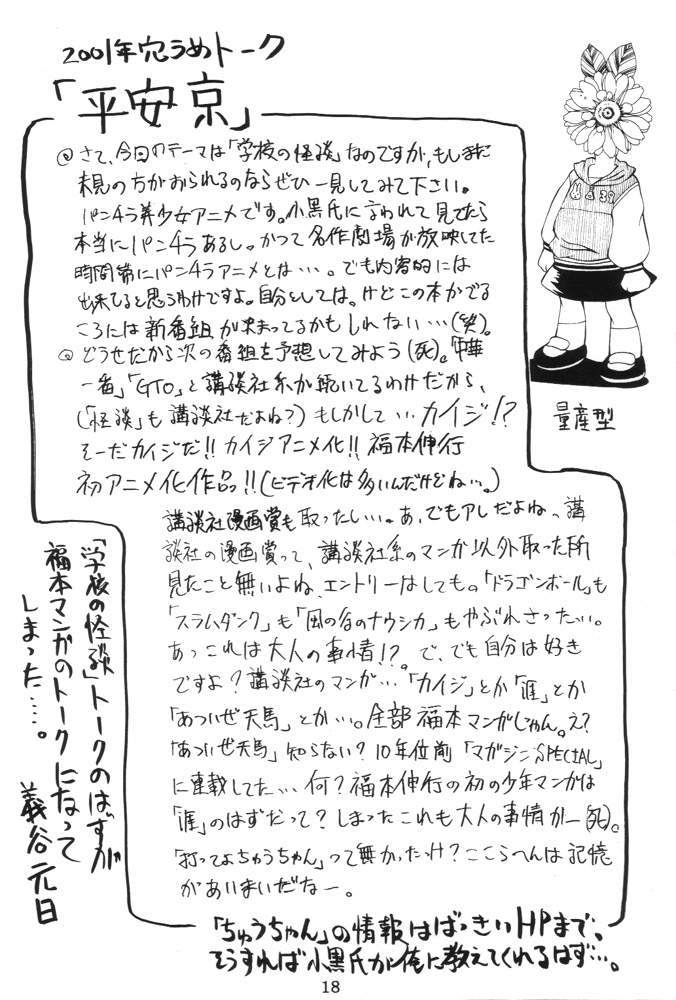 2001年穴うめトーク
「平安京」
◎さて、今回のテーマは「学校の怪談」なのですが、もしまだ
未見の方がおられるのならぜひ一見してみて下さい。
パンチラ美少女アニメです。小黒氏に言われて見てたら
本当にパンチラあるし。かつて名作劇場が放映してた
時間帯にパンチラアニメとは…。でも内容的には
出来てると思うわけですよ。自分としては。けどこの本がでる
ころには新番組が決まってるかもしれない…(笑)。
◎どうせだから次の番組を予想してみよう(死)。「中華
一番」「GTO」と講談社系が続いてるわけだから、
(「怪談」も講談社だよね?)もしかして…カイジ!?
そーだカイジだ!!カイジアニメ化!!福本伸行
初アニメ化作品っ!!(ビデオ化は多いんだけどね…。)
講談社漫画賞も取ったしい…。あ、でもアレだよね、講
談社の漫画賞って、講談社系のマンガ以外取った所
見たこと無いよね、エントリーはしても。「ドラゴンボール」も
「スラムダンク」も「風の谷のナウシカ」もやぶれさったい…。
あっこれは大人の事情!?。で、でも自分は好き
ですよ?講談社のマンガ…「カイジ」とか「涯」とか
「あついぜ天馬」とか…。全部福本マンガじゃん。え?
「あついぜ天馬」知らない?10年位前「マガジンSPECIAL」
に連載してた…何?福本伸行の初の少年マンガは
「涯」のはずだって?しまったこれも大人の事情かー(死)。
「打ってよちゅうちゃん」って無かったっけ?ここらへんは記憶
があいまいだなー。
「ちゅうちゃん」の情報はばっきいHPまで。
そうすれば小黒氏が俺に教えてくれるはず…。
「学校の怪談」トークのはずが
福本マンガのトークになって
しまった…。
義谷元日
量産型
18